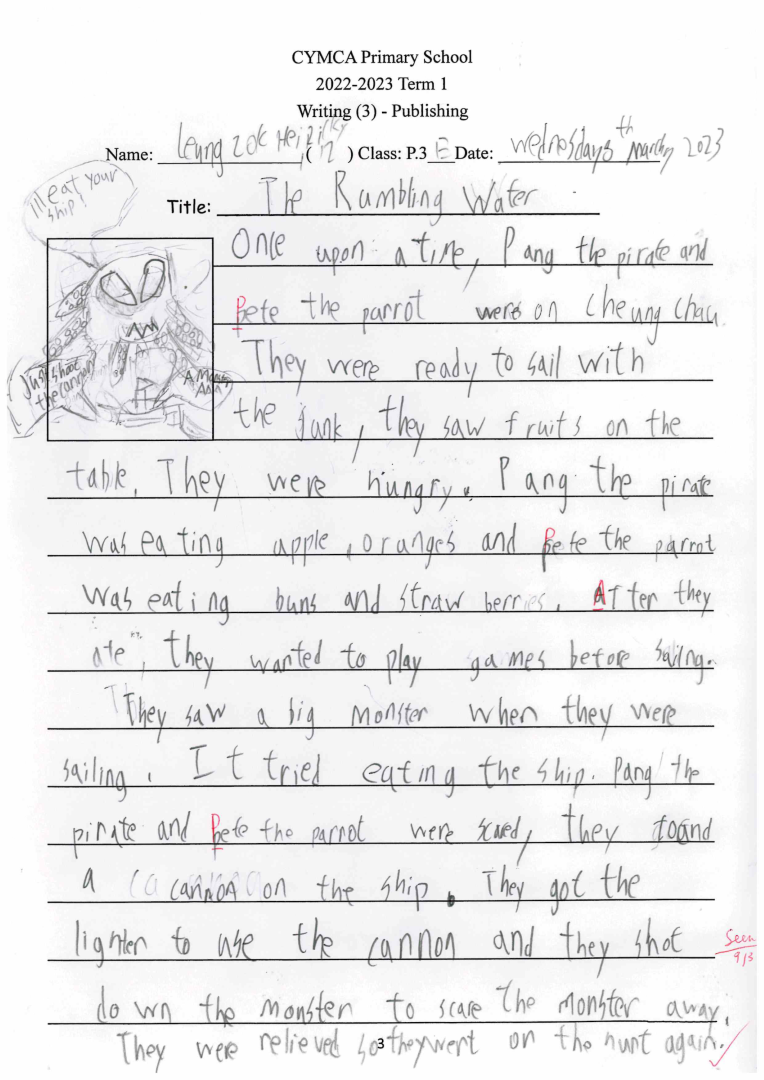 CYMCA Primary School
2022-2023 Term 1
Writing (3) - Publishing
Name: Leung Zok Hei, Ricky (12) Class: P.3 E Date: Wednesday 8th March, 2023
I'll eat your ship!
Title: The Rumbling Water
Once upon a time, Pang the pirate and
Pete the parrot were on Cheung Chau.
They were ready to sail with
Just shoot the cannon
A Monster AAA!
the junk, they saw fruits on the
table. They were hungry. Pang the pirate
was eating apple, oranges and Pete the parrot
was eating buns and strawberries. After they
ate, they wanted to play games before sailng.
They saw a big monster when they were
sailing. It tried eating the ship. Pang the
pirate and Pete the parrot were scared, they found
a cannon on the ship. They got the
lighter to use the cannon and they shot
Seen
9/3
down the monster to scare the monster away.
They were relieved so they went on the hunt again.
3